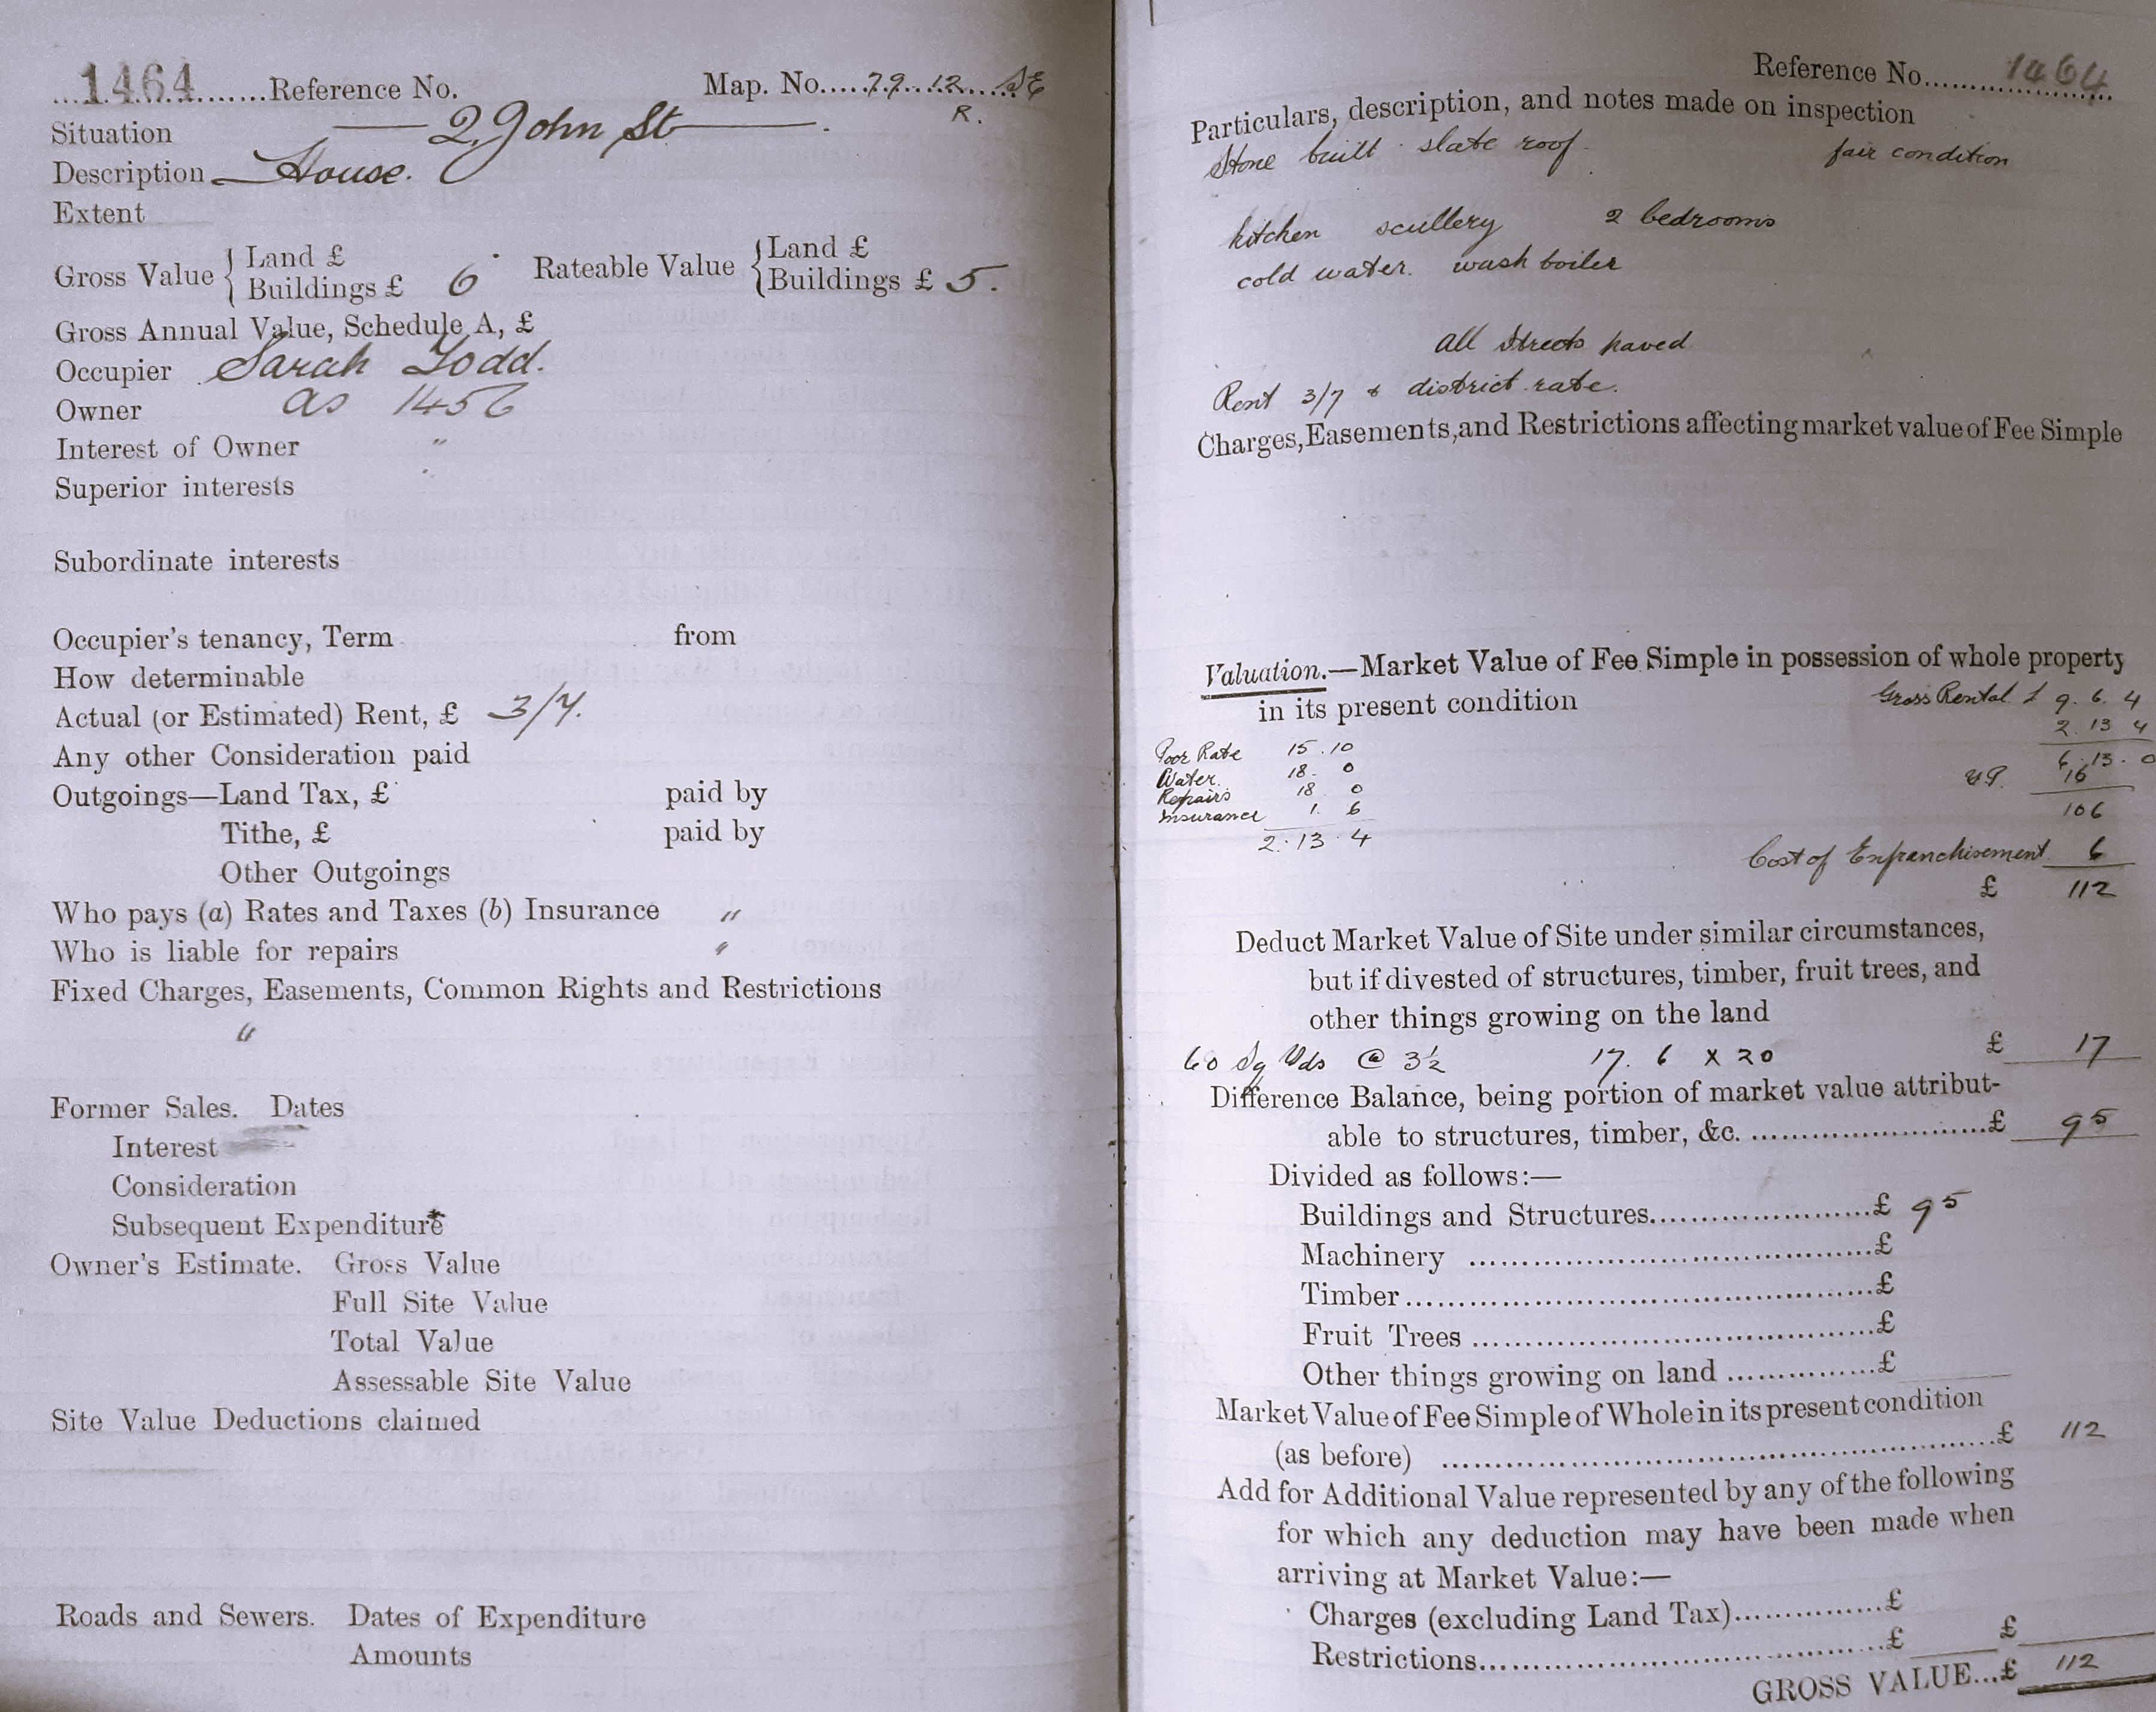 1464 Reference No. Map. No. 79. 12 SE
R.
Situation 2 John St
Description House.
Extent
Gross Value { Land £ Rateable Value { Land £
Buildings £ 6 Buildings £ 5.
Gross Annual Value, Schedule A, £
Occupier Sarah Todd.
Owner as 1456
Interest of Owner "
Superior interests
Subordinate interests
Occupier's tenancy, Term from
How determinable
Actual (or Estimated) Rent, £ 3/7.
Any other Consideration paid
Outgoings—Land Tax, £ paid by
Tithe, £ paid by
Other Outgoings
Who pays (a) Rates and Taxes (b) Insurance "
Who is liable for repairs "
Fixed Charges, Easements, Common Rights and Restrictions
"
Former Sales. Dates
Interest
Consideration
Subsequent Expenditure
Owner's Estimate. Gross Value
Full Site Value
Total Value
Assessable Site Value
Site Value Deductions claimed
Roads and Sewers. Dates of Expenditure
Amounts
Reference No. 1464
Particulars, description, and notes made on inspection
Stone built slate roof. fair condition
kitchen scullery 2 bedrooms
cold water. wash boiler
all streets paved
Rent 3/7 & district rate.
Charges, Easements, and Restrictions affecting market value of Fee Simple
Valuation.—Market Value of Fee Simple in possession of whole property
in its present condition Gross Rental £ 9. 6. 4
2. 13 4
Poor Rate 15. 10 6. 13. 0
Water. 18. 0 YP. 16
Repairs 18 0
Insurance 1. 6 106
2. 13. 4
Cost of Enfranchisement 6
£ 112
Deduct Market Value of Site under similar circumstances,
but if divested of structures, timber, fruit trees, and
other things growing on the land
60 Sq Yds @ 3½ 17. 6 x 20 £ 17
Difference Balance, being portion of market value attribut-
able to structures, timber, &c. £ 95
Divided as follows:—
Buildings and Structures £ 95
Machinery £
Timber £
Fruit Trees £
Other things growing on land £
Market Value of Fee Simple of Whole in its present condition
(as before) £ 112
Add for Additional Value represented by any of the following
for which any deduction may have been made when
arriving at Market Value:—
Charges (excluding Land Tax) £
Restrictions £ £
GROSS VALUE...£ 112